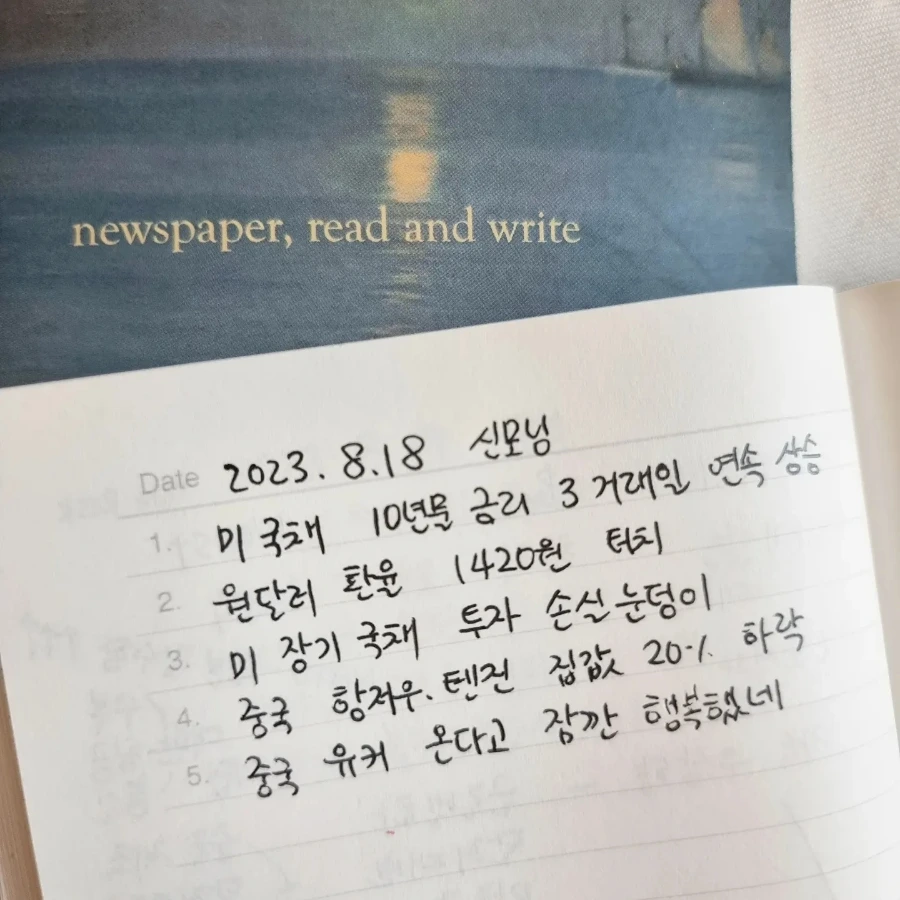 newspaper, read and write
Date 2023. 8.18 신모닝
1. 미 국채 10년물 금리 3 거래일 연속 상승
2. 원달러 환율 1420원 터치
3. 미 장기 국채 투자 손실 눈덩이
4. 중국 항저우. 텐진 집값 20% 하락
5. 중국 유커 온다고 잠깐 행복했네